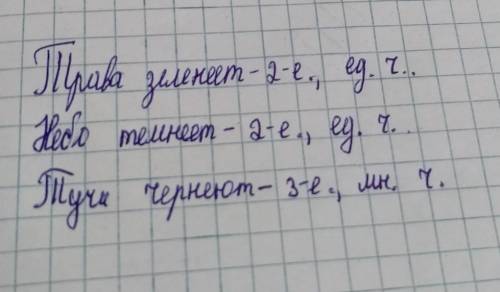 Трава зеленеет - 2-е., ед. ч..
Небо темнеет - 2-е., ед. ч..
Тучи чернеют - 3-е., мн. ч.